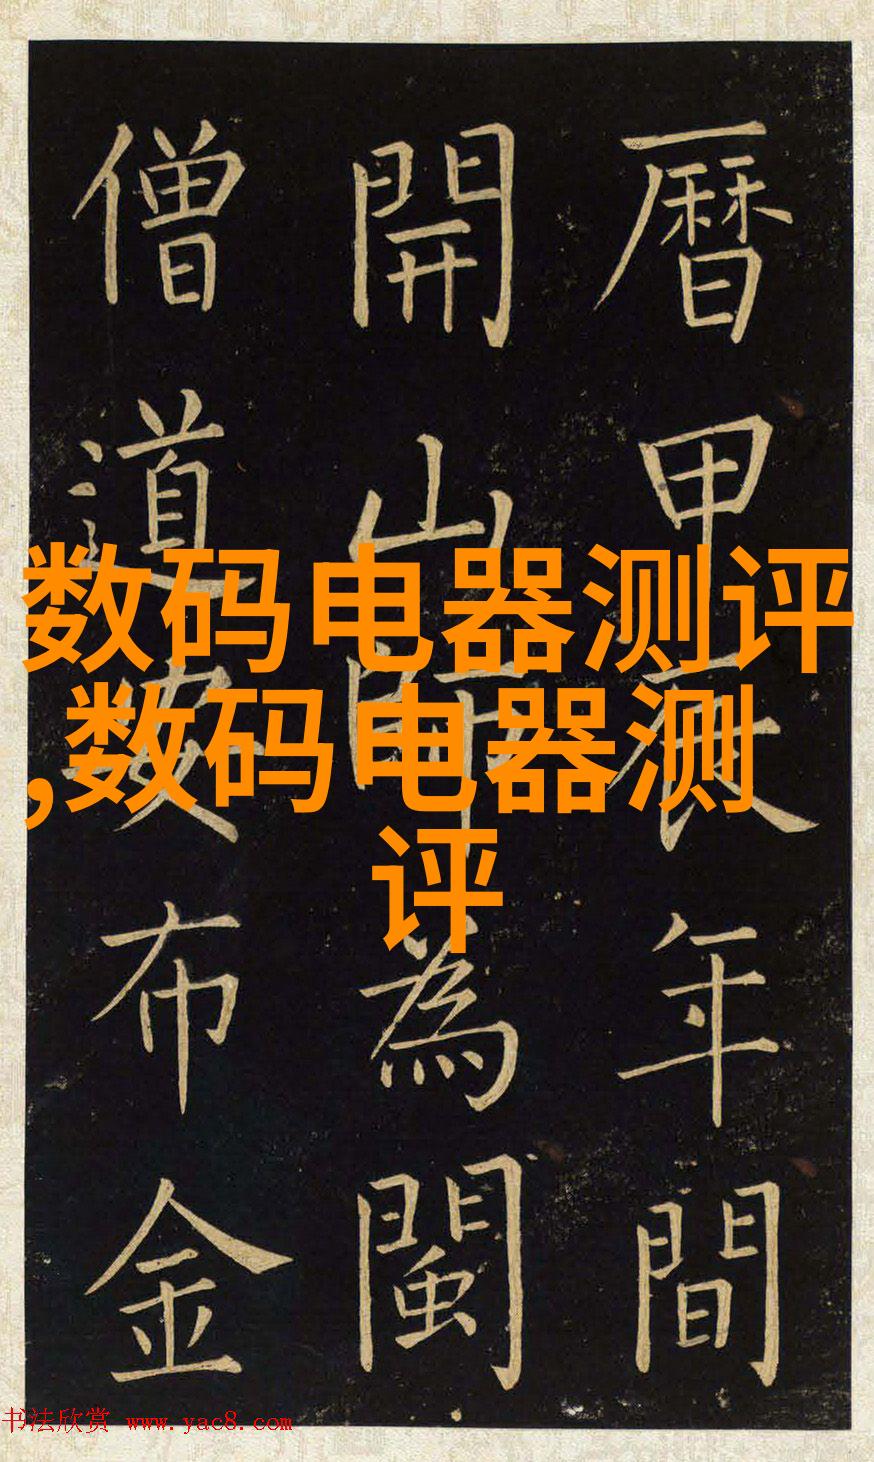 曆甲辰年間
開山師為閩
僧道安布金
数码电器测评
,数码电器测
评
书法欣赏 www.yac8.com